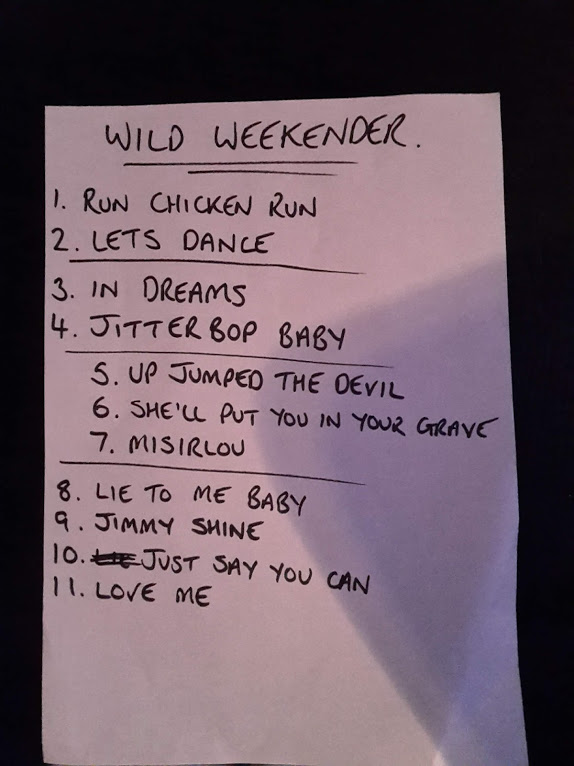 WILD WEEKENDER.
1. RUN CHICKEN RUN
2. LETS DANCE
3. IN DREAMS
4. JITTERBOP BABY
5. UP JUMPED THE DEVIL
6. SHE'LL PUT YOU IN YOUR GRAVE
7. MISIRLOU
8. LIE TO ME BABY
9. JIMMY SHINE
10. JUST SAY YOU CAN
11. LOVE ME